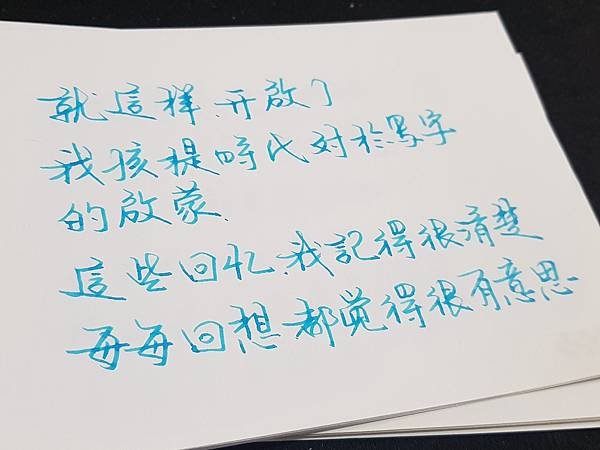 就這样,开啟了
我孩提時代对於写字
的啟蒙.
這些回忆,我記得很清楚
每每回想都觉得很有意思